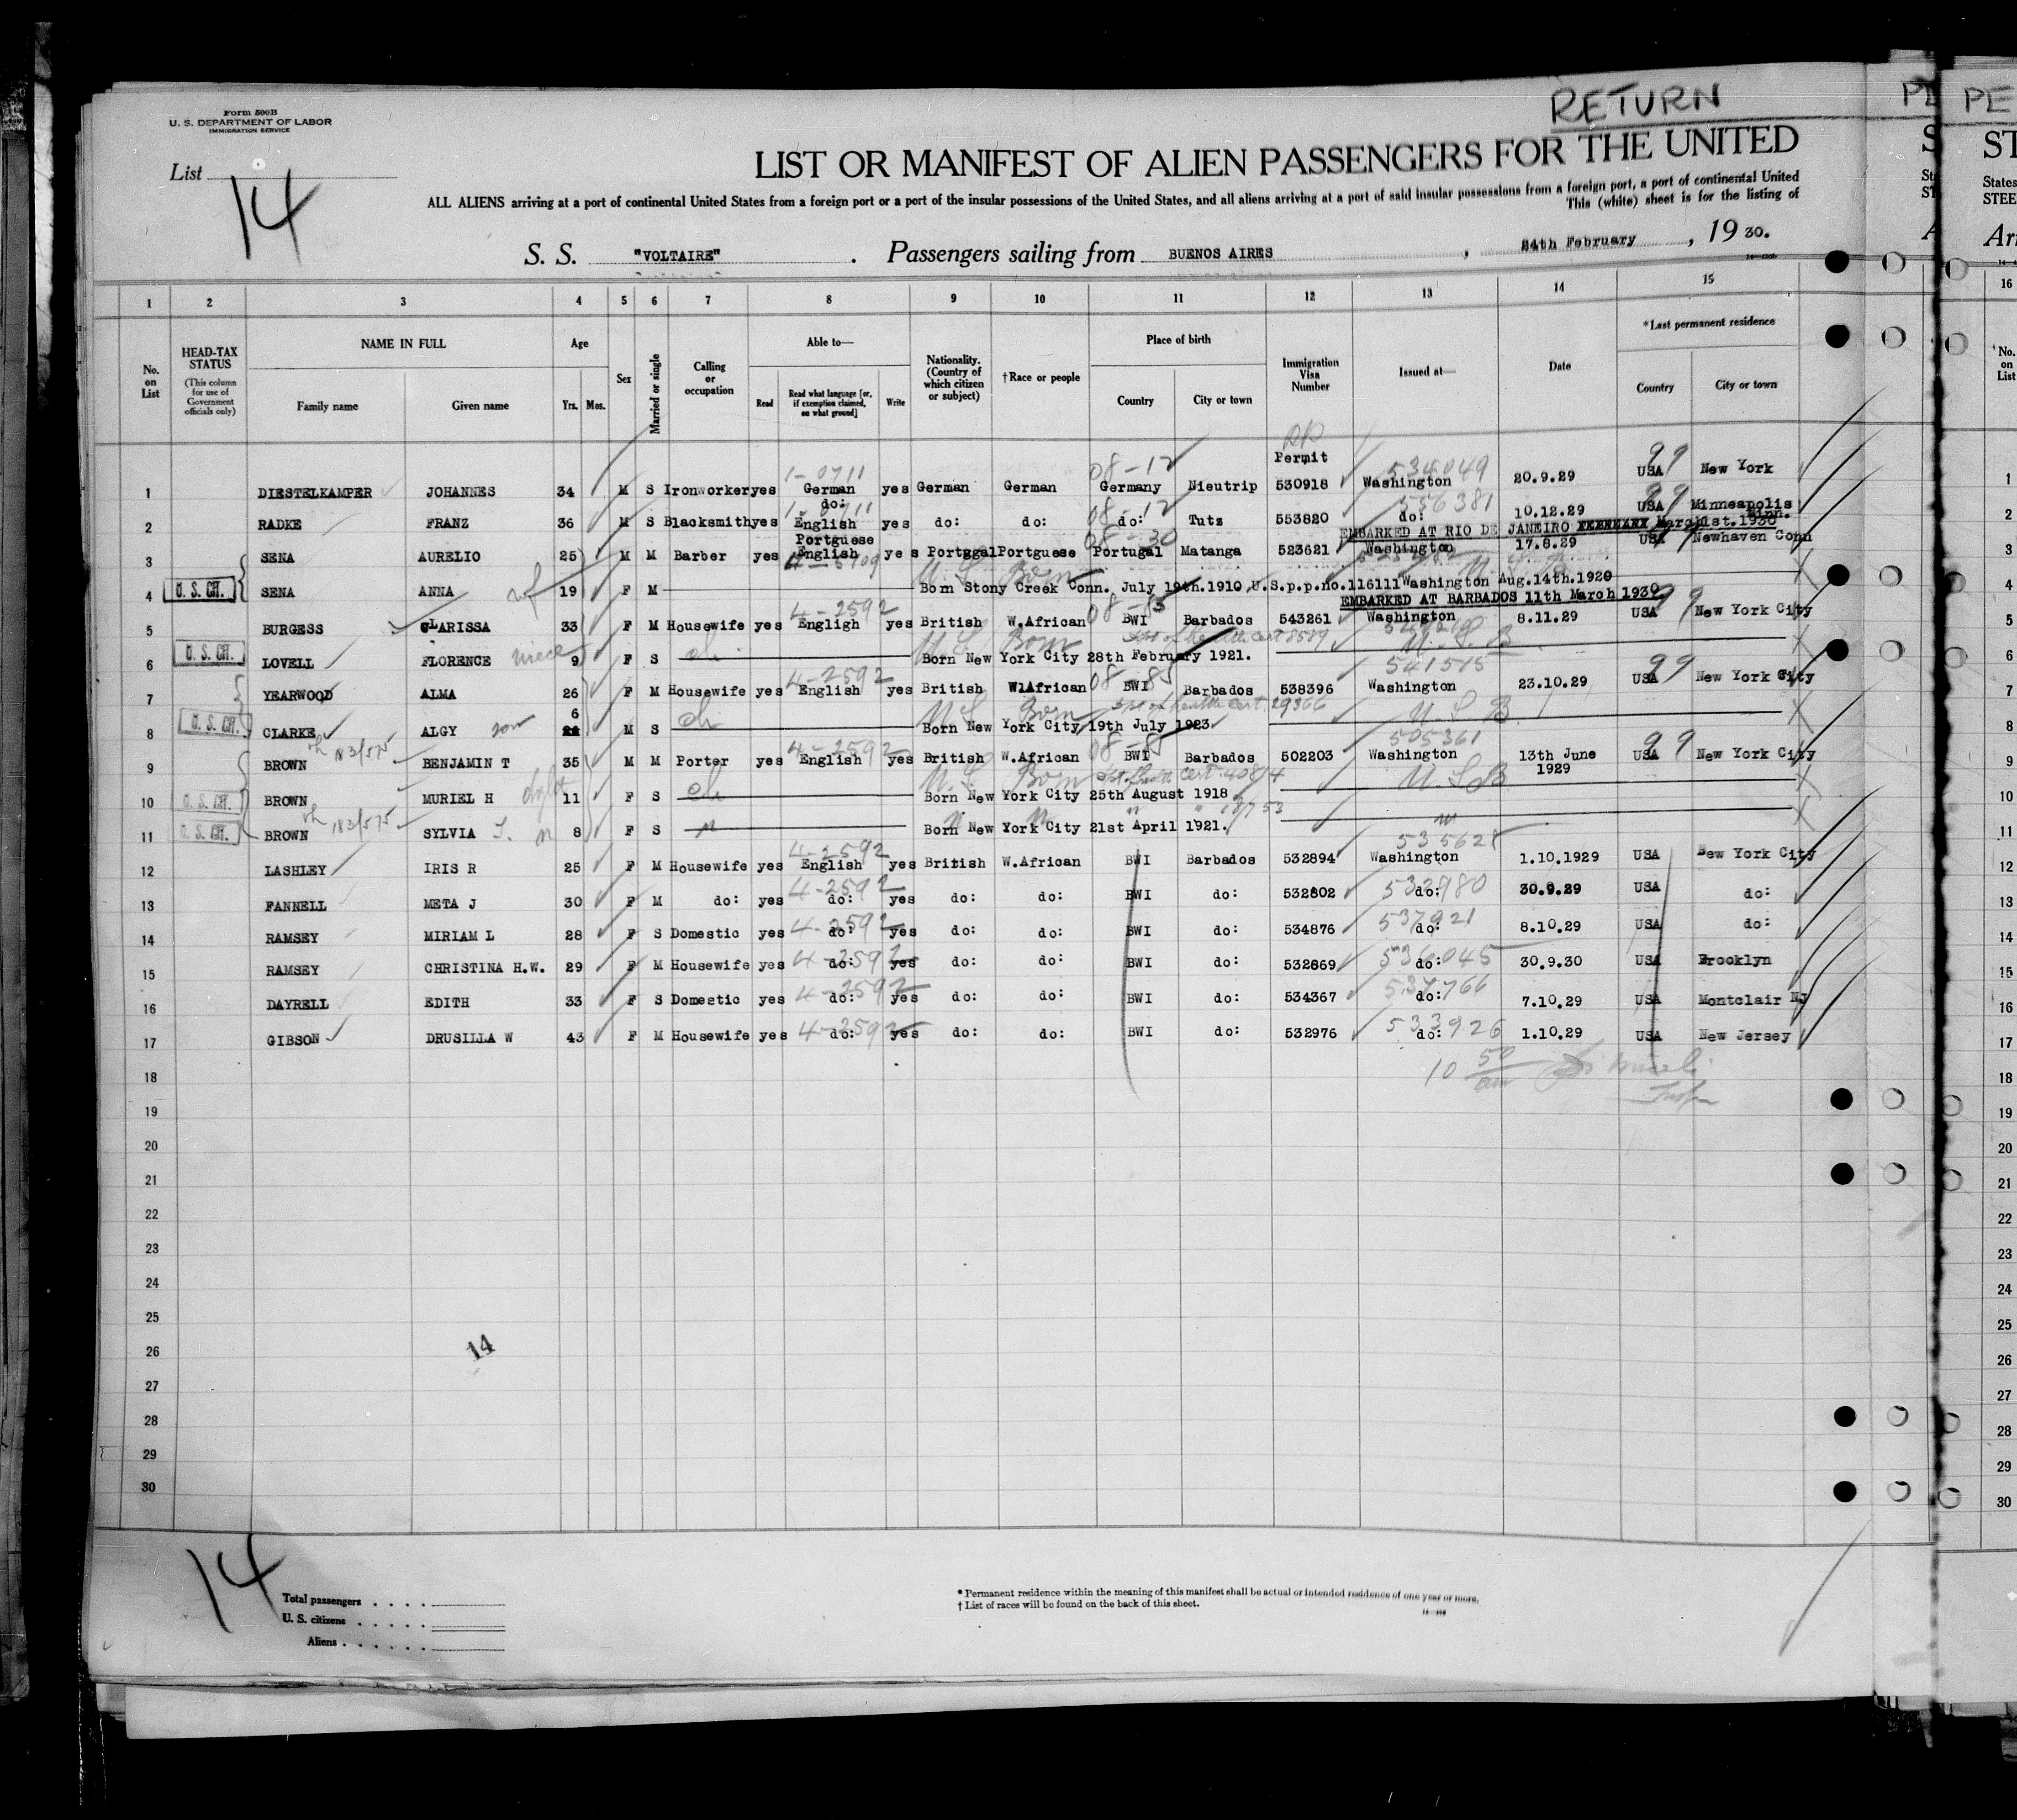 RETURN
Form 500B
U. S. DEPARTMENT OF LABOR
IMMIGRATION SERVICE
List 14
LIST OR MANIFEST OF ALIEN PASSENGERS FOR THE UNITED
ALL ALIENS arriving at a port of continental United States from a foreign port or a port of the insular possessions of the United States, and all aliens arriving at a port of said insular possessions from a foreign port, a port of continental United
This (white) sheet is for the listing of
S. S. "VOLTAIRE". Passengers sailing from BUENOS AIRES, 24th February, 19 30.
1 2 3 4 5 6 7 8 9 10 11 12 13 14 15 16
No. on List
HEAD-TAX STATUS (This column for use of Government officials only)
NAME IN FULL Family name Given name
Age Yrs. Mos.
Sex
Married or single
Calling or occupation
Able to— Read Read what language [or, if exemption claimed, on what ground] Write
Nationality. (Country of which citizen or subject)
†Race or people
Place of birth Country City or town
Immigration Visa Number
Issued at—
Date
*Last permanent residence Country City or town
Permit
1 DIESTELKAMPER JOHANNES 34 M S Ironworker yes 1-0711 German yes German German 08-12 Germany Nieutrip 530918 534049 Washington 20.9.29 USA 99 New York
2 RADKE FRANZ 36 M S Blacksmith yes do: 1-0711 English yes do: do: 08-12 do: Tutz 553820 556381 do: 10.12.29 USA Minneapolis Minn.
EMBARKED AT RIO DE JANEIRO March 1st. 1930
3 SENA AURELIO 25 M M Barber yes Portguese English yes Portggal Portguese 08-30 Portugal Matanga 523621 Washington 17.8.29 USA Newhaven Conn
4 U. S. CIT. SENA ANNA wf 19 F M U S Born Born Stony Creek Conn. July 19th.1910 U.S.p.p.no.116111 Washington Aug.14th.1920
EMBARKED AT BARBADOS 11th March 1930
5 BURGESS CLARISSA 33 F M Housewife yes 4-2592 Engligh yes British W.African BWI Barbados 543261 Washington 8.11.29 USA 99 New York City
6 U. S. CIT. LOVELL FLORENCE niece 9 F S ch U S Born Born New York City 28th February 1921. U S B
7 YEARWOOD ALMA 26 F M Housewife yes 4-2592 English yes British WlAfrican 08-85 BWI Barbados 538396 541515 Washington 23.10.29 USA 99 New York City
8 U. S. CIT. CLARKE ALGY son 6 M S ch U S Born Born New York City 19th July 1923 U S B
9 BROWN BENJAMIN T 35 M M Porter yes 4-2592 English yes British W.African 08-85 BWI Barbados 502203 505361 Washington 13th June 1929 USA 99 New York City
10 U. S. CIT. BROWN MURIEL H 11 F S ch U S Born Born New York City 25th August 1918 U S B
11 U. S. CIT. BROWN SYLVIA 8 F S Born New York City 21st April 1921.
12 LASHLEY IRIS R 25 F M Housewife yes 4-2592 English yes British W.African BWI Barbados 532894 Washington 1.10.1929 USA New York City
13 FANNELL META J 30 F M do: yes 4-2592 do: yes do: do: BWI do: 532802 532980 do: 30.9.29 USA do:
14 RAMSEY MIRIAM L 28 F S Domestic yes 4-2592 do: yes do: do: BWI do: 534876 537921 do: 8.10.29 USA do:
15 RAMSEY CHRISTINA H.W. 29 F M Housewife yes 4-2592 do: yes do: do: BWI do: 532869 536045 do: 30.9.30 USA Brooklyn
16 DAYRELL EDITH 33 F S Domestic yes 4-2592 do: yes do: do: BWI do: 534367 537766 do: 7.10.29 USA Montclair NJ
17 GIBSON DRUSILLA W 43 F M Housewife yes 4-2592 do: yes do: do: BWI do: 532976 533926 do: 1.10.29 USA New Jersey
18
10 50 am
19
20
21
22
23
24
25
26
14
27
28
29
30
14
Total passengers
U. S. citizens
Aliens
* Permanent residence within the meaning of this manifest shall be actual or intended residence of one year or more.
† List of races will be found on the back of this sheet.